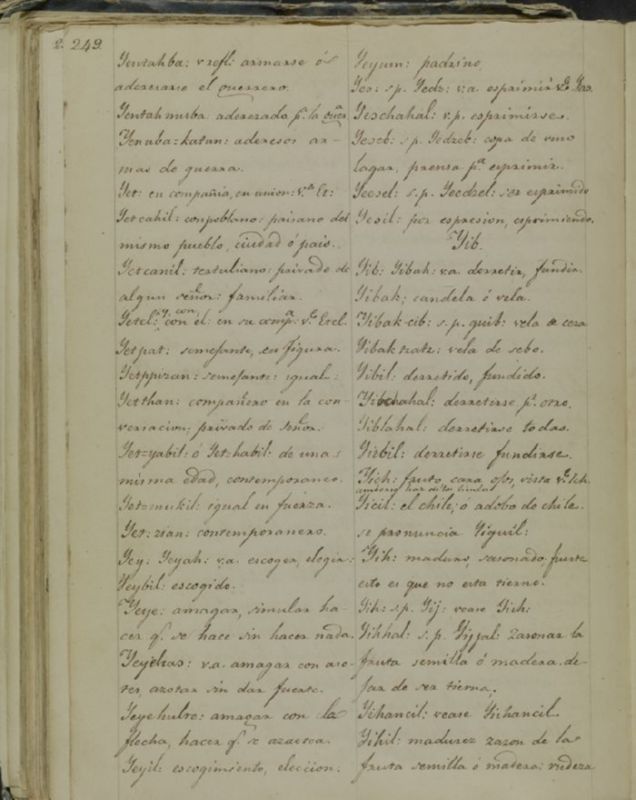 249.
Yentahba: v. refl: armarse ó
aderezarse el guerrero.
Yentahnuba. aderezado pa. la
Yenuba=katun: aderesos ar-
mas de guerra.
Yet: en compañia, en union: va. Et:
Yetcahil: conpoblano: paisano del
mismo pueblo, ciudad ó pais.
Yetcanil: tertuliano: privado de
algun señor: familiar.
Yetel: y, con, con el: en su compa.: ve. Etel.
Yetpat: semejante, en figura.
Yetppizan: semejante: igual:
Yetthan: compañero en la con-
versacion; privado de Señor.
Yet=yabil: ó Yet:habil: de una
misma edad, contemporaneo.
Yet=mukil: igual en fuerza.
Yet:zian: contemporaneo.
Yey: Yeyah: v.a. escoger, elegir:
Yeybil: escogido.
Yeye: amagar, simular ha-
cer q. se hace sin hacer nada.
v.a. amagar con azo-
tes, azotar sin dar fuerte.
amagar con la
flecha, hacer q. se
Yeyil: escogimiento, eleccion.
Yeyum: padrino.
Yes: s.p. Yedz: v.a. esprimir ve.
Yeschahal: v.p. esprimirse.
Yeseb: s.p. Yedzeb: copa de vino
lagar, prensa pa. esprimir.
Yeesel: s.p. Yeedzel: ser esprimido
Yesil: por espresion, esprimiendo.
Yib.
Yib: Yibah: v.a. derretir, fundir.
Yibak: candela ó vela.
Yibak-cib: s.p. quib: vela de cera
Yibak tzatz: vela de sebo.
Yibil: derretido, fundido.
Yibchahal: derretirse pr. otro.
Yiblahal: derretirse todas.
derretirse fundirse.
Yich: fruto, cara ojos, vista ve. Ich.
Yicil: el chile, ó adobo de chile.
se pronuncia Yiquil:
Yih: maduro, sasonado, fuerte
esto es que no esta tierno.
Yih: sp. Yij: vease Yich:
Yihhal: s.p. Yijjal: zazonar la
fruta semilla ó madera. de-
jar de ser tierna.
Yihancil: vease Yichancil.
Yihil: madurez zazon de la
fruta semilla ó madera: rudeza